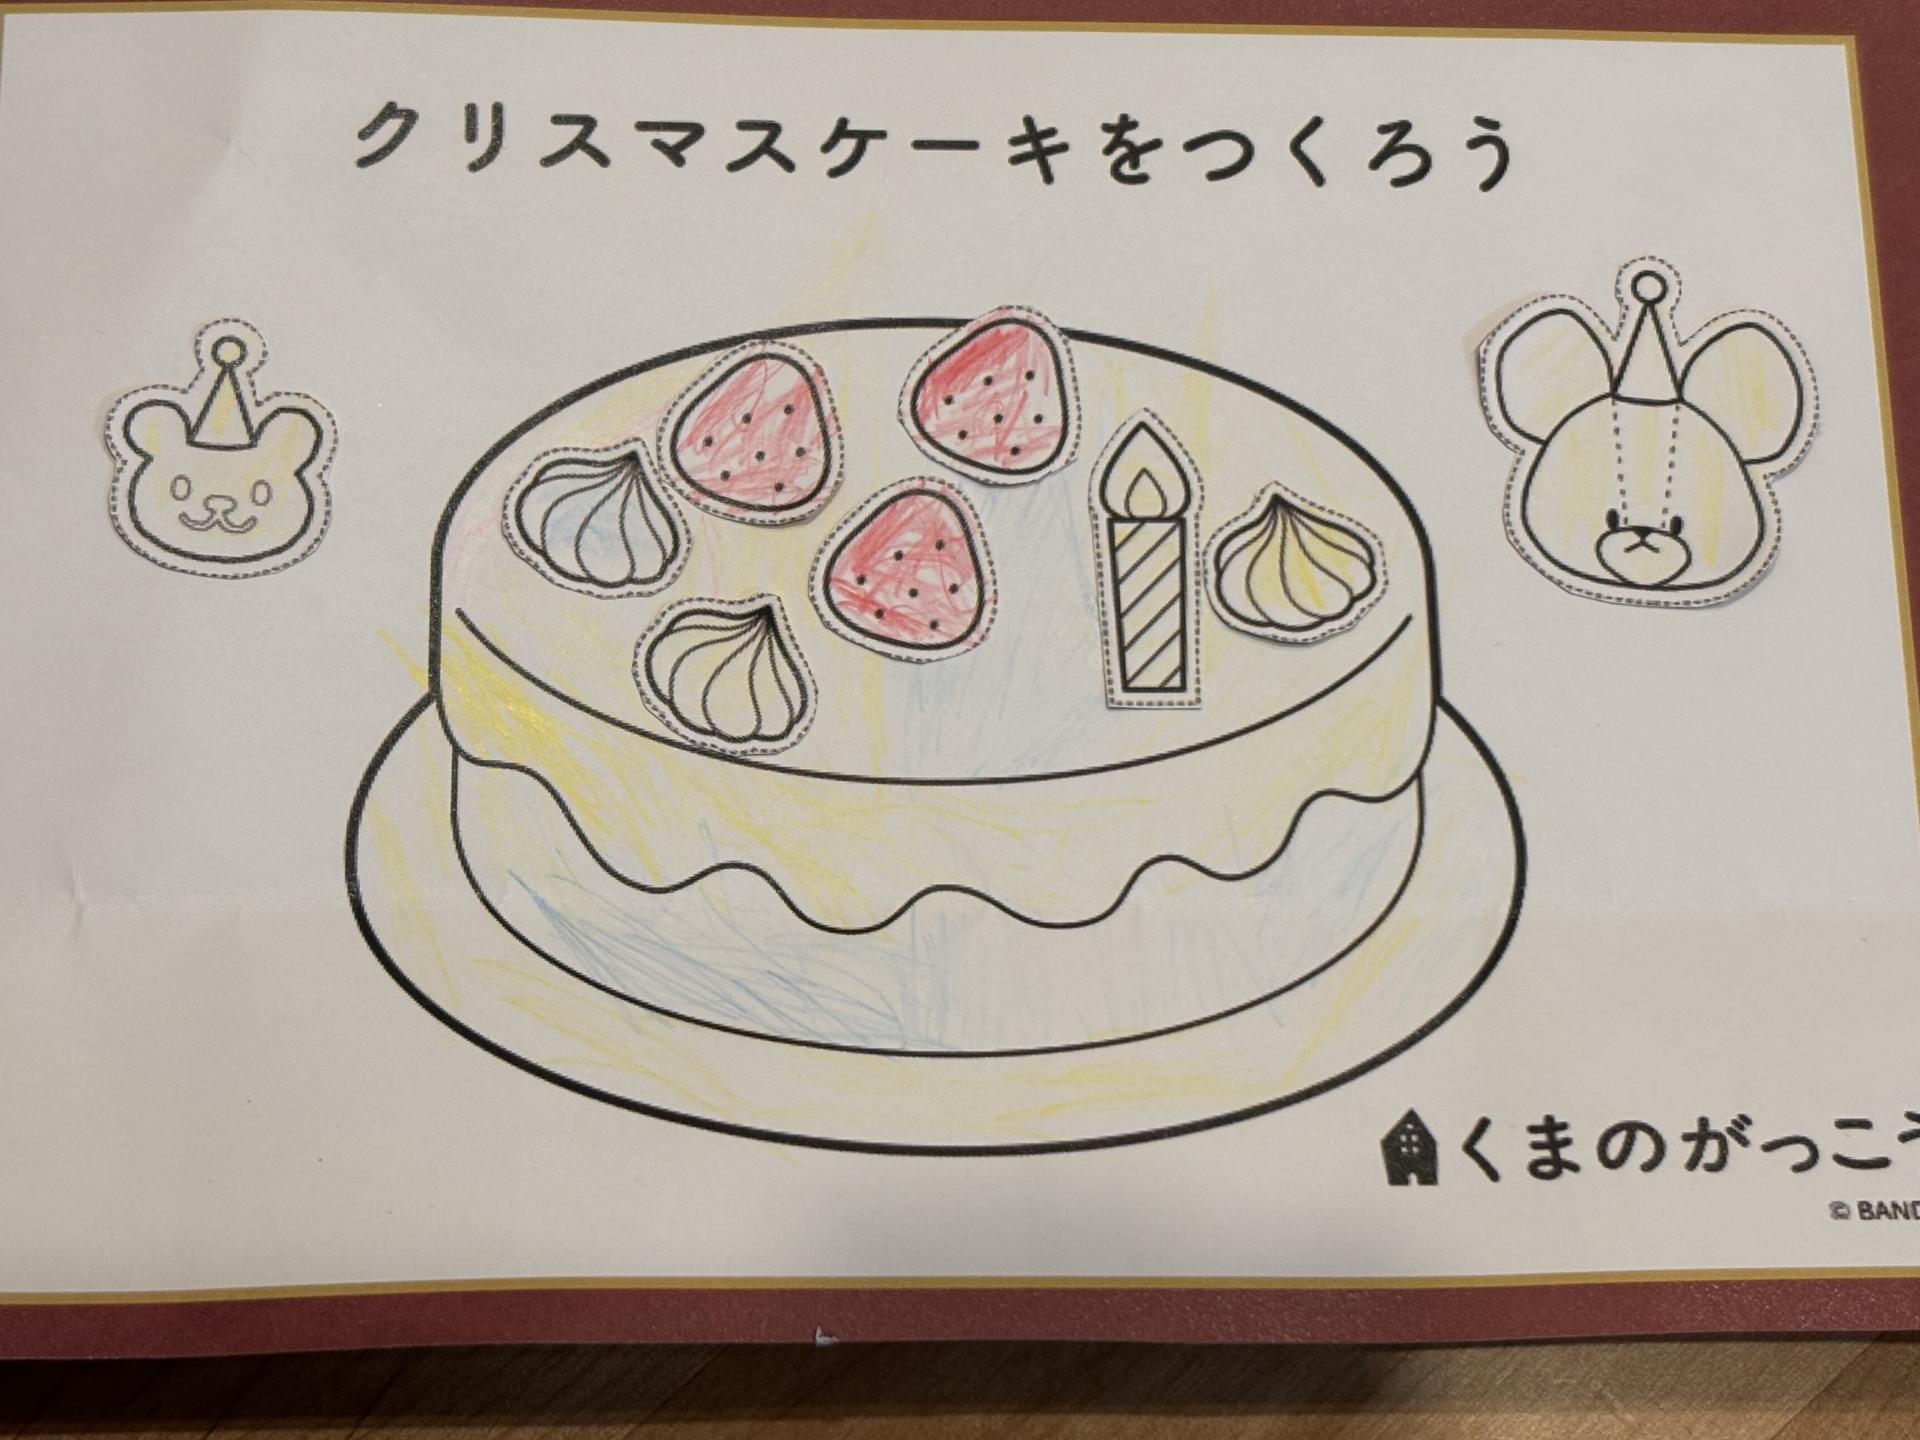 クリスマスケーキをつくろう
くまのがっこう
© BAND